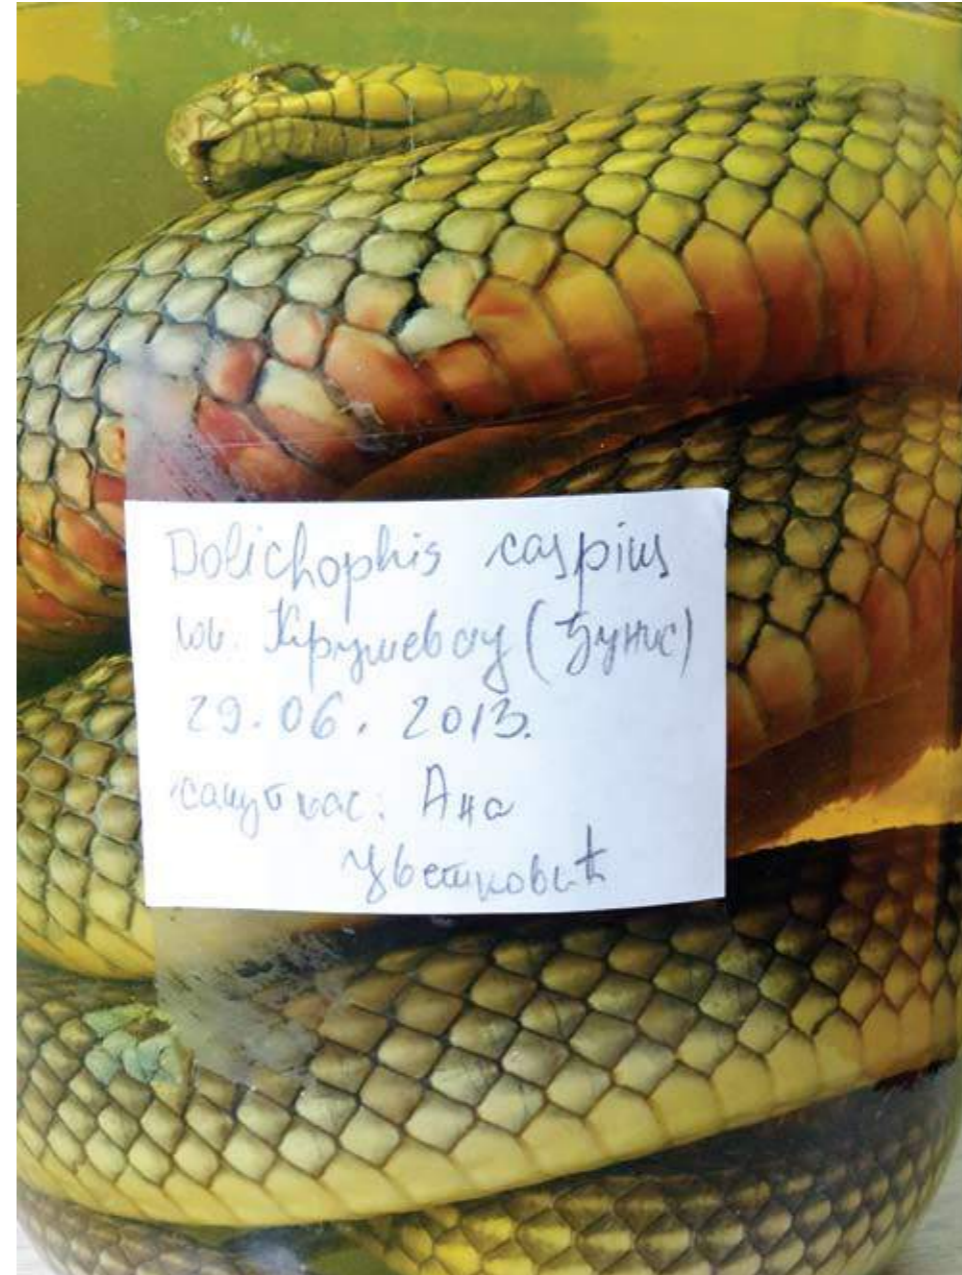 Dolichophis caspius
ок. Крушевац (Ђунис)
29.06.2013.
сакупљас: Ана
Цветковић